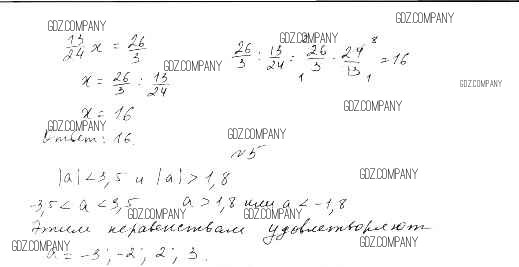 GDZ.COMPANY
13/24 x = 26/3
GDZ.COMPANY
26/3 : 13/24 = 26/3 · 24/13 = 16
2 8
1 1
GDZ.COMPANY
x = 26/3 : 13/24
GDZ.COMPANY
x = 16
GDZ.COMPANY
GDZ.COMPANY
Ответ: 16.
GDZ.COMPANY
№5
|a| < 3,5 и |a| > 1,8
GDZ.COMPANY
-3,5 < a < 3,5 a > 1,8 или a < -1,8
GDZ.COMPANY GDZ.COMPANY
Этим неравенствам удовлетворяют
GDZ.COMPANY GDZ.COMPANY
a = -3; -2; 2; 3.